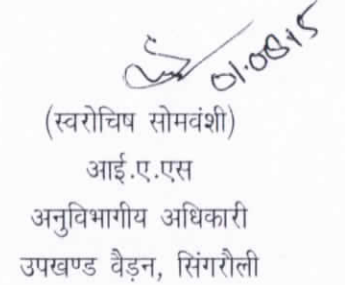 01.08.15
(स्वरोचिष सोमवंशी)
आई.ए.एस
अनुविभागीय अधिकारी
उपखण्ड वैड़न, सिंगरौली